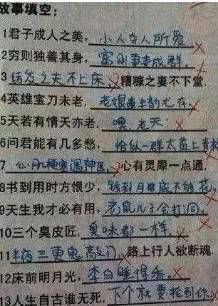 故事填空:
1君子成人之美, 小人夺人所爱
2穷则独善其身, 富则妻妾成群
3 糟糠之妻不下堂.
4英雄宝刀未老, 老娘风韵犹存
5天若有情天亦老. 噢, 老天
6问君能有几多愁, 恰似一群太监上青楼
7 心肌梗塞遇神医, 心有灵犀一点通.
8书到用时方恨少, 钱到月底不够花
9天生我才必有用, 老鼠儿子会打洞
10三个臭皮匠, 臭味都一样
11半夜三更鬼敲门 路上行人欲断魂.
12床前明月光, 李白睡得香
13人生自古谁无死, 下个就要轮到你